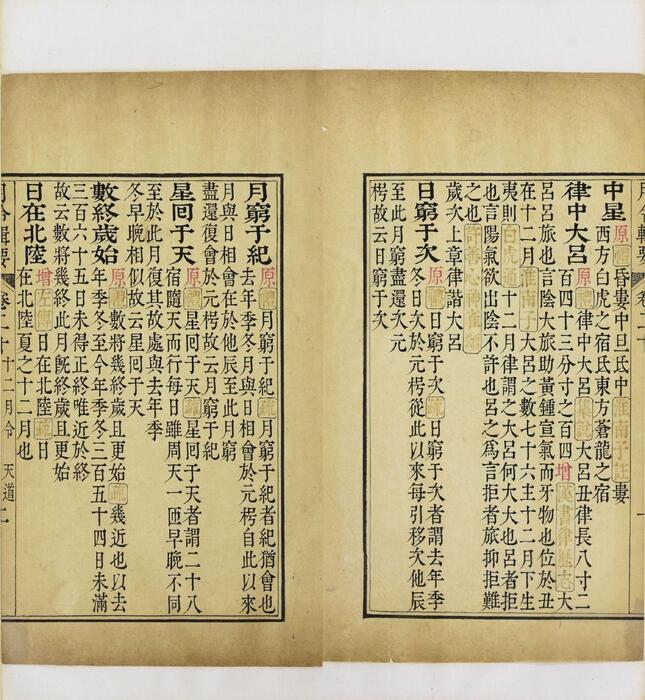 月令輯要 卷二十 一
中星 原 禮 昏婁中旦氐中 淮南子註 婁
西方白虎之宿氐東方蒼龍之宿
律中大呂 原 禮 律中大呂 集說 大呂丑律長八寸二
百四十三分寸之百四 增 漢書律歷志 大
呂呂旅也言陰大旅助黃鍾宣氣而牙物也位於丑
在十二月 淮南子 大呂之數七十六主十二月下生
夷則 白虎通 十二月律謂之大呂何大大也呂者拒
也言陽氣欲出陰不許也呂之爲言拒者旅抑拒難
之也 許善心神雀頌
歲次上章律諧大呂
日窮于次 原 禮 日窮于次 疏 日窮于次者謂去年季
冬日次於元枵從此以來每引移次他辰
至此月窮盡還次元
枵故云日窮于次
月窮于紀 原 禮 月窮于紀 疏 月窮于紀者紀猶會也
去年季冬月與日相會於元枵自此以來
月與日相會在於他辰至此月窮
盡還復會於元枵故云月窮于紀
星回于天 原 禮 星回于天 疏 星回于天者謂二十八
宿隨天而行每日雖周天一匝早晚不同
至於此月復其故處與去年季
冬早晚相似故云星回于天
數終歲始 原 禮 數將幾終歲且更始 疏 幾近也以去
年季冬至今年季冬三百五十四日未滿
三百六十五日未得正終唯近於終
故云數將幾終此月旣終歲且更始
日在北陸 增 左傳 日在北陸 疏 日
在北陸夏之十二月也
月令輯要 卷二十 十二月令 天道 二